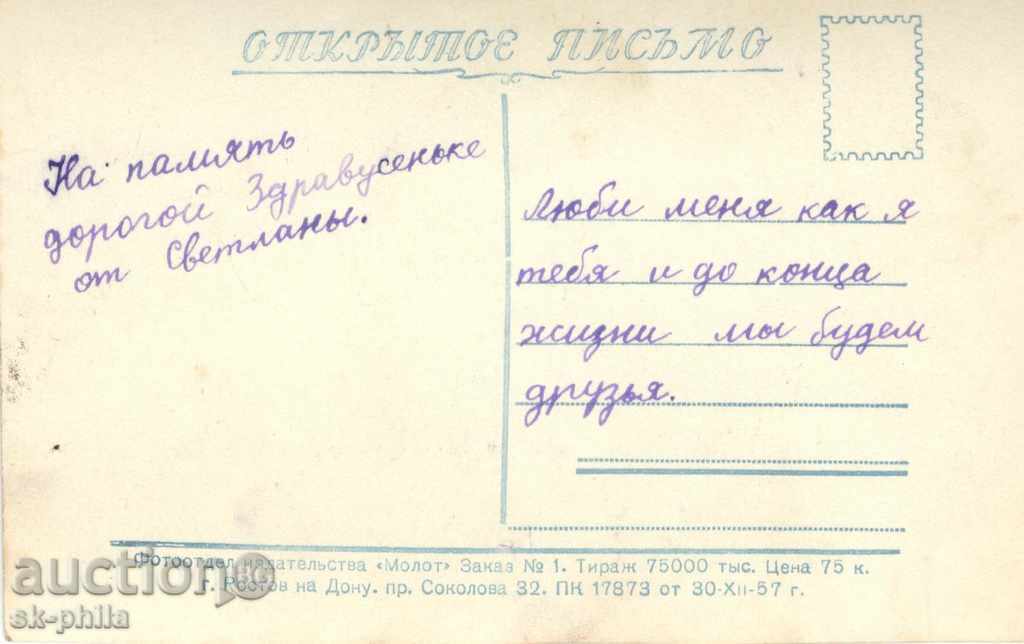 ОТКРЫТОЕ ПИСЬМО
На память
дорогой Здравусеньке
от Светланы.
Люби меня как я
тебя и до конца
жизни мы будем
друзья.
Фотоотдел издательства «Молот» Заказ № 1. Тираж 75000 тыс. Цена 75 к.
г. Ростов на Дону. пр. Соколова 32. ПК 17873 от 30-XII-57 г.
auction BG
sk-phila